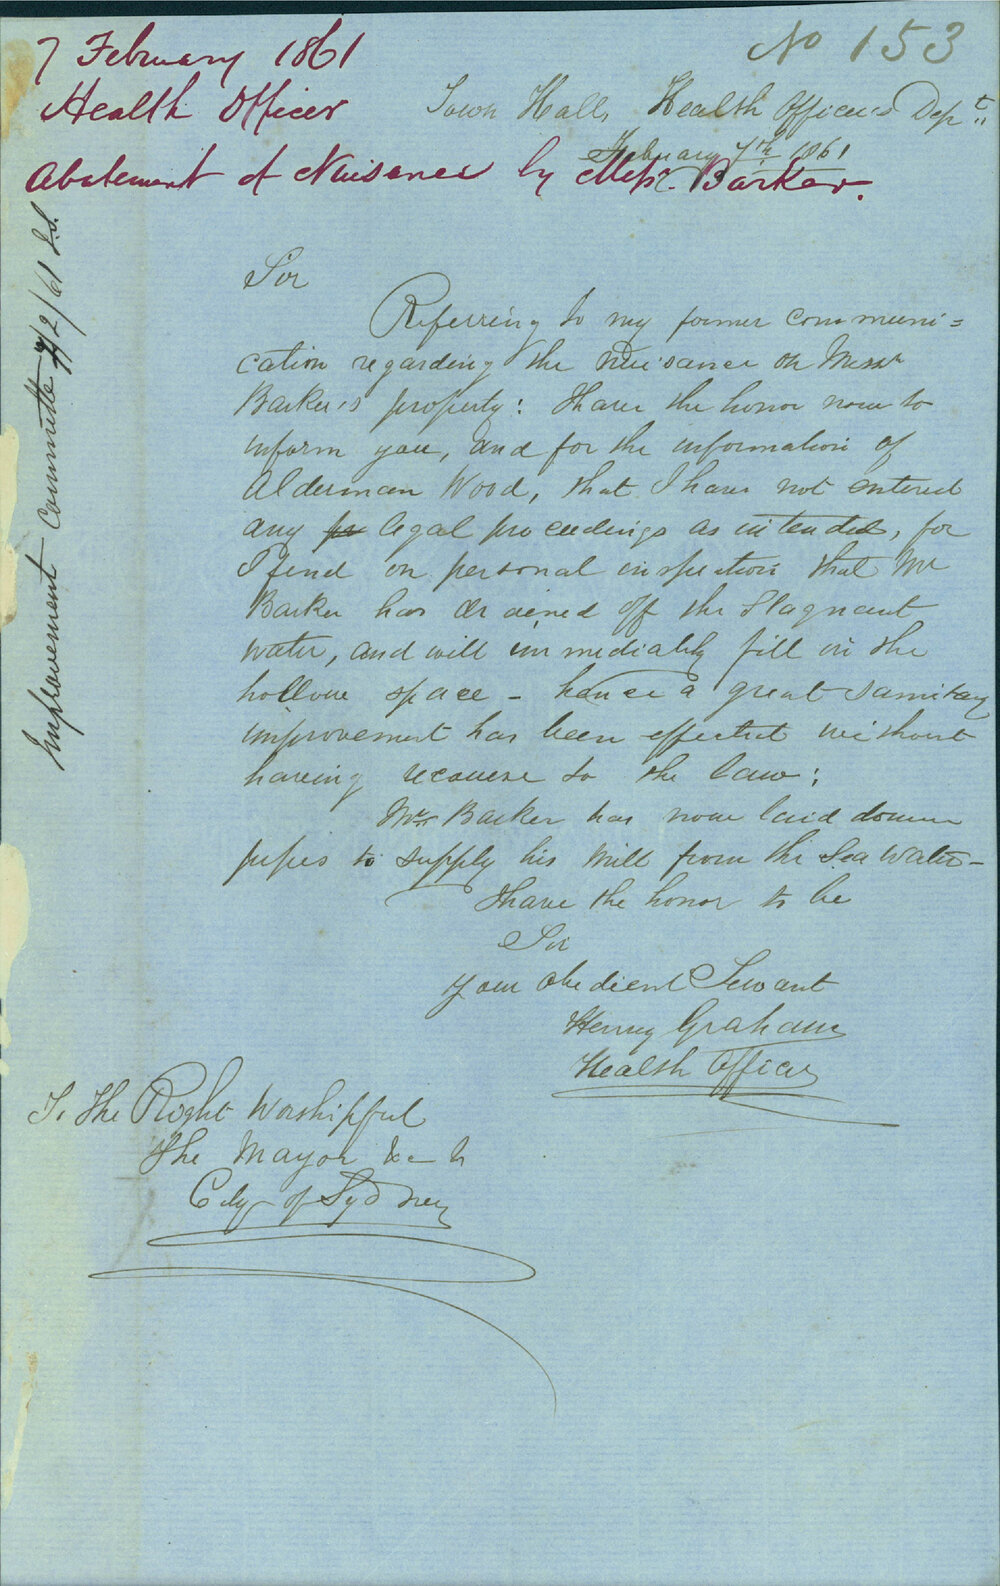 No 153
7 February 1861
Health Officer
Abatement of Nuisance by Messrs. Barker.
Town Hall, Health Officer's Dept.
February 7th 1861
Improvement Committee 2/61
Sir
Referring to my former communi=
cation regarding the nuisance on Messr
Barker's property: I have the honor now to
inform you, and for the information of
Alderman Wood, that I have not entered
any legal proceedings as intended, for
I find on personal inspection that Mr
Barker has drained off the stagnant
water, and will immediately fill in the
hollow space - hence a great sanitary
improvement has been effected without
having recourse to the law:
Mr. Barker has now laid down
pipes to supply his Mill from the Sea Water -
I have the honor to be
Sir
Your obedient Servant
Henry Graham
Health Officer
To The Right Worshipful
The Mayor &c
City of Sydney